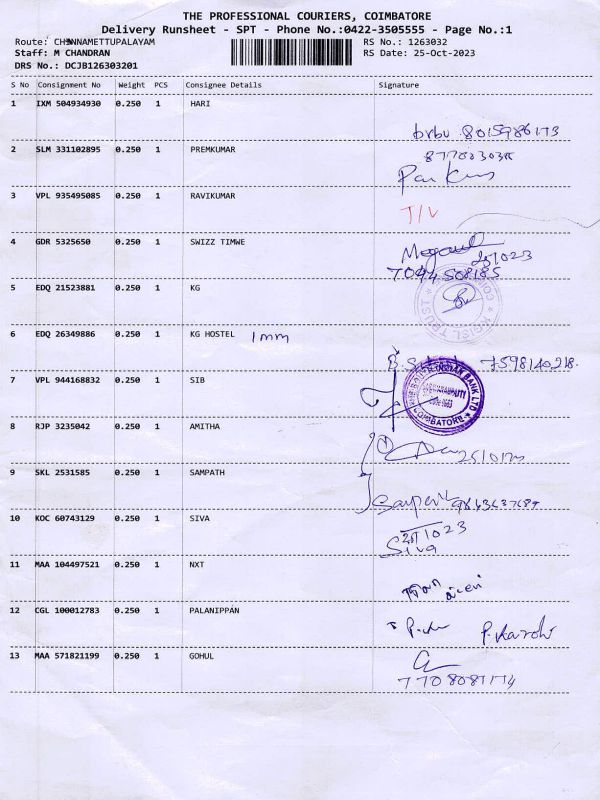 THE PROFESSIONAL COURIERS, COIMBATORE
Delivery Runsheet - SPT - Phone No.:0422-3505555 - Page No.:1
Route: CHINNAMETTUPALAYAM RS No.: 1263032
Staff: M CHANDRAN RS Date: 25-Oct-2023
DRS No.: DCJB126303201
S No Consignment No Weight PCS Consignee Details Signature
1 IXM 504934930 0.250 1 HARI
8015986173
2 SLM 331102895 0.250 1 PREMKUMAR
3 VPL 935495085 0.250 1 RAVIKUMAR
4 GDR 5325650 0.250 1 SWIZZ TIMWE
7094508185
5 EDQ 21523881 0.250 1 KG
TRUST
6 EDQ 26349886 0.250 1 KG HOSTEL 1mm
7598140218.
7 VPL 944168832 0.250 1 SIB
INDIAN BANK LTD
COIMBATORE
8 RJP 3235042 0.250 1 AMITHA
9 SKL 2531585 0.250 1 SAMPATH
10 KOC 60743129 0.250 1 SIVA
Siva
11 MAA 104497521 0.250 1 NXT
12 CGL 100012783 0.250 1 PALANIPPÁN
13 MAA 571821199 0.250 1 GOHUL